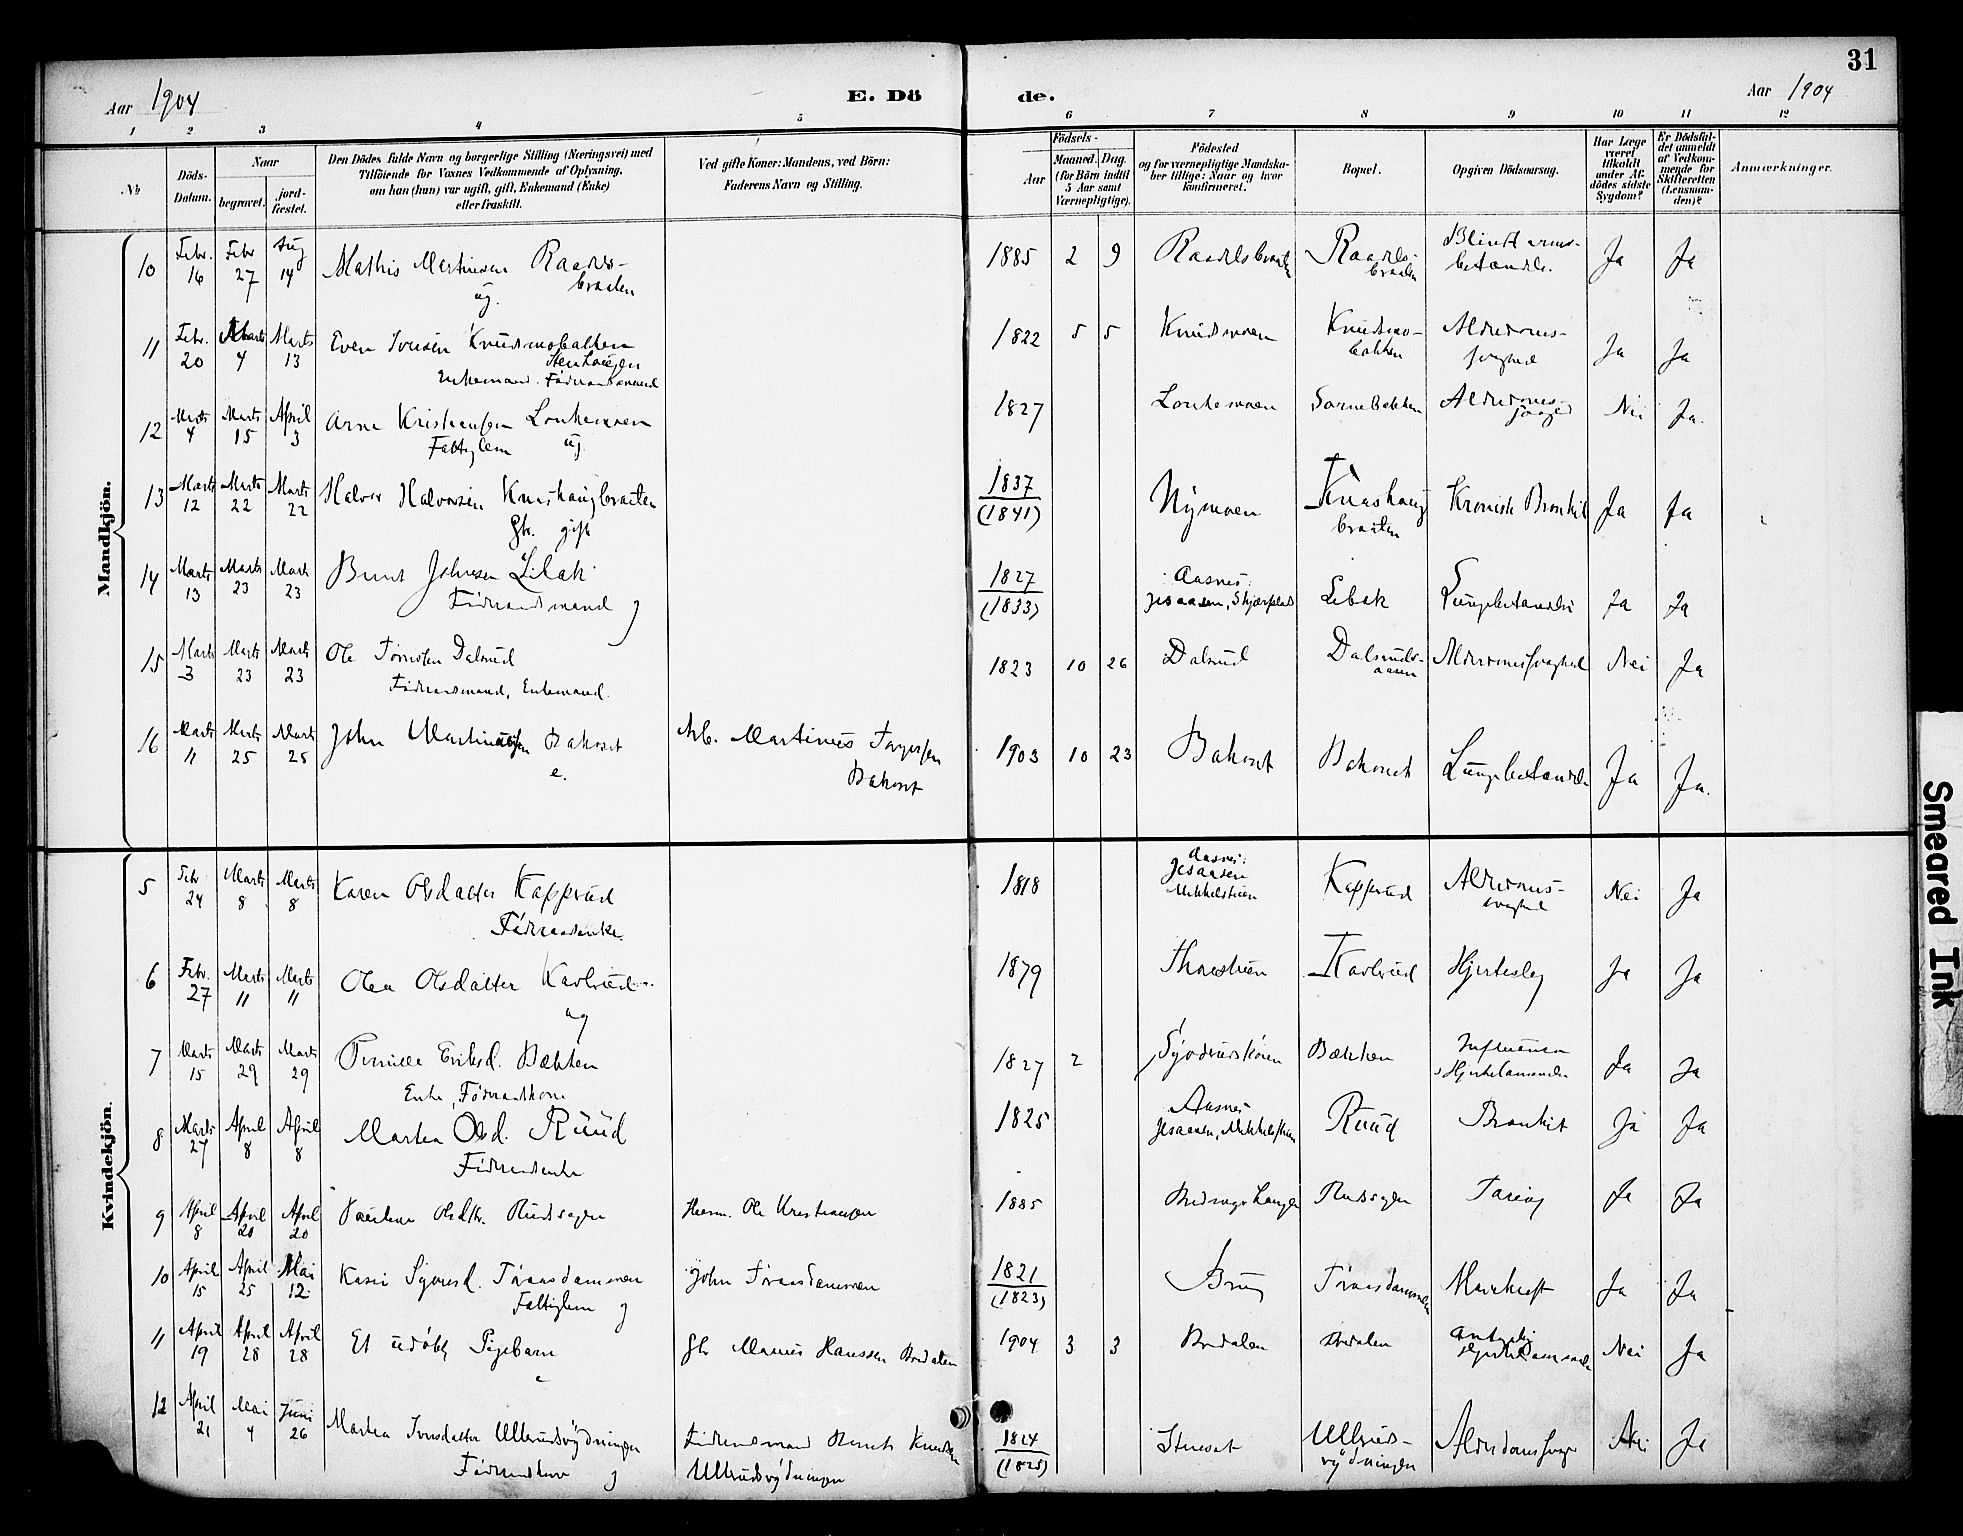 31
Aar 1904
E. Dö
de.
Aar 1904
1 2 3 4 5 6 7 8 9 10 11 12
No
Döds-
Datum.
Naar
begravet.
jord-
fæstet.
Den Dödes fulde Navn og borgerlige Stilling (Næringsvei) med
Tilföiende for Voxnes Vedkommende af Oplysning,
om han (hun) var ugift, gift, Enkemand (Enke)
eller fraskilt.
Ved gifte Koner: Mandens, ved Börn:
Faderens Navn og Stilling.
Födsels-
Aar
Maaned. Dag.
(for Börn indtil
5 Aar samt
Værnepligtige).
Födested
og for værnepligtige Mandska-
ber tillige: Naar og hvor
konfirmeret.
Bopæl.
Opgiven Dödsaarsag.
Har Læge
været
tilkaldt
under Af-
dödes sidste
Sygdom?
Er Dödsfal-
det anmeldt
af Vedkom-
mende for
Skifteretten
(Lensman-
den)?
Anmærkninger.
Mandkjön.
10 Febr. 16 Febr 27 Aug 14 Mathis Martinsen Raadels-
braaten
ug.
1885 2 9 Raadelsbraaten Raadels-
braaten Blindtarms-
betændelse. Ja Ja
11 Febr. 20 Marts 4 Marts 13 Even Iversen Knudsmobakken
Stenhaugen
Enkemand. Föderaadsmand
1822 5 5 Knudsmoen Knudsmo-
bakken Alderdoms-
svaghed Ja Ja
12 Marts 4 Marts 15 April 3 Arne Kristiansen Loukemoen
Fattiglem ug.
1827 Loukemoen Alderdoms-
Nei Ja.
13 Marts 12 Marts 22 Marts 22 Halvor Halvorsen Knashaugbraaten
gift
1837
(1841) Nymoen Knashaug
braaten Kronisk Bronkit Ja Ja
14 Marts 13 Marts 23 Marts 23 Bernt Johnsen Libak
Föderaadsmand g
1827
(1833) Aasnes:
Jesaasen, Skjærplads Libak Lungebetændelse Ja Ja
15 Marts 3 Marts 23 Marts 23 Ole Dalsrud
Föderaadsmand, Enkemand.
1823 10 26 Dalsrud Dalsruds-
aasen Alderdomssvaghed Nei Ja
16 Marts 11 Marts 25 Marts 25 John Martinussen Bakoset
e.
Arb. Martinus Torgersen
Bakoset
1903 10 23 Bakoset Bakoset Lungebetændelse Ja Ja.
Kvindekjön.
5 Febr 24 Marts 8 Marts 8 Karen Olsdatter Kapperud
Föderaadsenke.
1818 Aasnes:
Jesaasen
Mikkelstuen Kapperud Alderdoms-
svaghed Nei Ja
6 Febr. 27 Marts 11 Marts 11 Olea Olsdatter
ug
1879 Hjertesyg Ja Ja
7 Marts 15 Marts 29 Marts 29 Pernille Eriksd. Bækken
Enke, Föderaadskone
1827 2 Bækken Influensa
Ja Ja
8 Marts 27 April 8 April 8 Marthea Olsd. Ruud
Föderaadsenke
1825 Aasnes
Jesaasen, Mikkelstuen Ruud Bronkit Ja Ja
9 April 8 April 20 April 20 Pauline Olsdtr. Rudsegen
Ole Kristiansen
1885 Rudsegen Ja Ja
10 April 15 April 25 Mai 12 Kari Syversd.
Fattiglem g
John
1821
(1823) Marekreft Ja Ja
11 April 19 April 28 April 28 Et udöbt Pigebarn
e
Marius Hanssen Bredalen
1904 3 3 Bredalen Bredalen Nei Ja
12 April 21 Mai 4 Juni 26 Marthea Iversdatter Ullerudsrydningen
Föderaadskone g
Föderaadsmand Bernt Knudsen
Ullerudsrydningen
1824
(1825) Stueset Ullerud-
rydningen Alderdomssvag Nei Ja
Smeared Ink